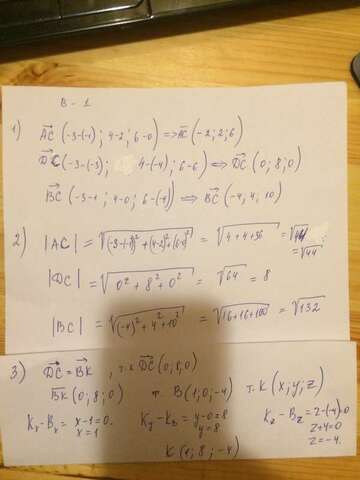 B - 1
1) AC (-3-(-1); 4-2; 6-0) => AC (-2; 2; 6)
DC (-3-(-3); 4-(-4); 6-6) <=> DC (0; 8; 0)
BC (-3-1; 4-0; 6-(-4)) => BC (-4; 4; 10)
2) |AC| = √((-3-(-1))²+(4-2)²+(6-0)²) = √(4+4+36) = √44
= √44
|DC| = √(0²+8²+0²) = √64 = 8
|BC| = √((-4)²+4²+10²) = √(16+16+100) = √132
3) DC = BK, т.к DC (0; 8; 0)
BK (0; 8; 0) т. B (1; 0; -4) т. K (x; y; z)
Kx - Bx = x-1=0. Ky - KB = y-0=8 Kz - Bz = z-(-4)=0
x=1 y=8 z+4=0
K (1; 8; -4) z=-4.